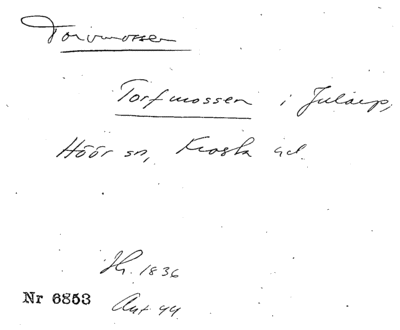 Torvmossen
Torfmossen i Jularp,
Höör sn, Frosta hd.
Jh. 1836
Nr 6853 Ant 44